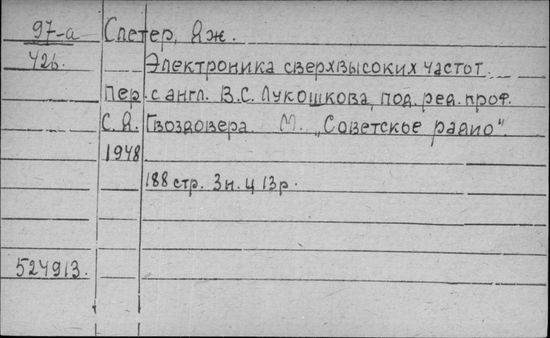 97-а Слетер, Дж.
426. Электроника сверхвысоких частот.
Пер. с англ. В.С. Лукошкова, под. ред. проф.
С. Д. Гвоздовера. М. „Советское радио".
1948
188 стр. 3 н. ц 13 р.
524913.